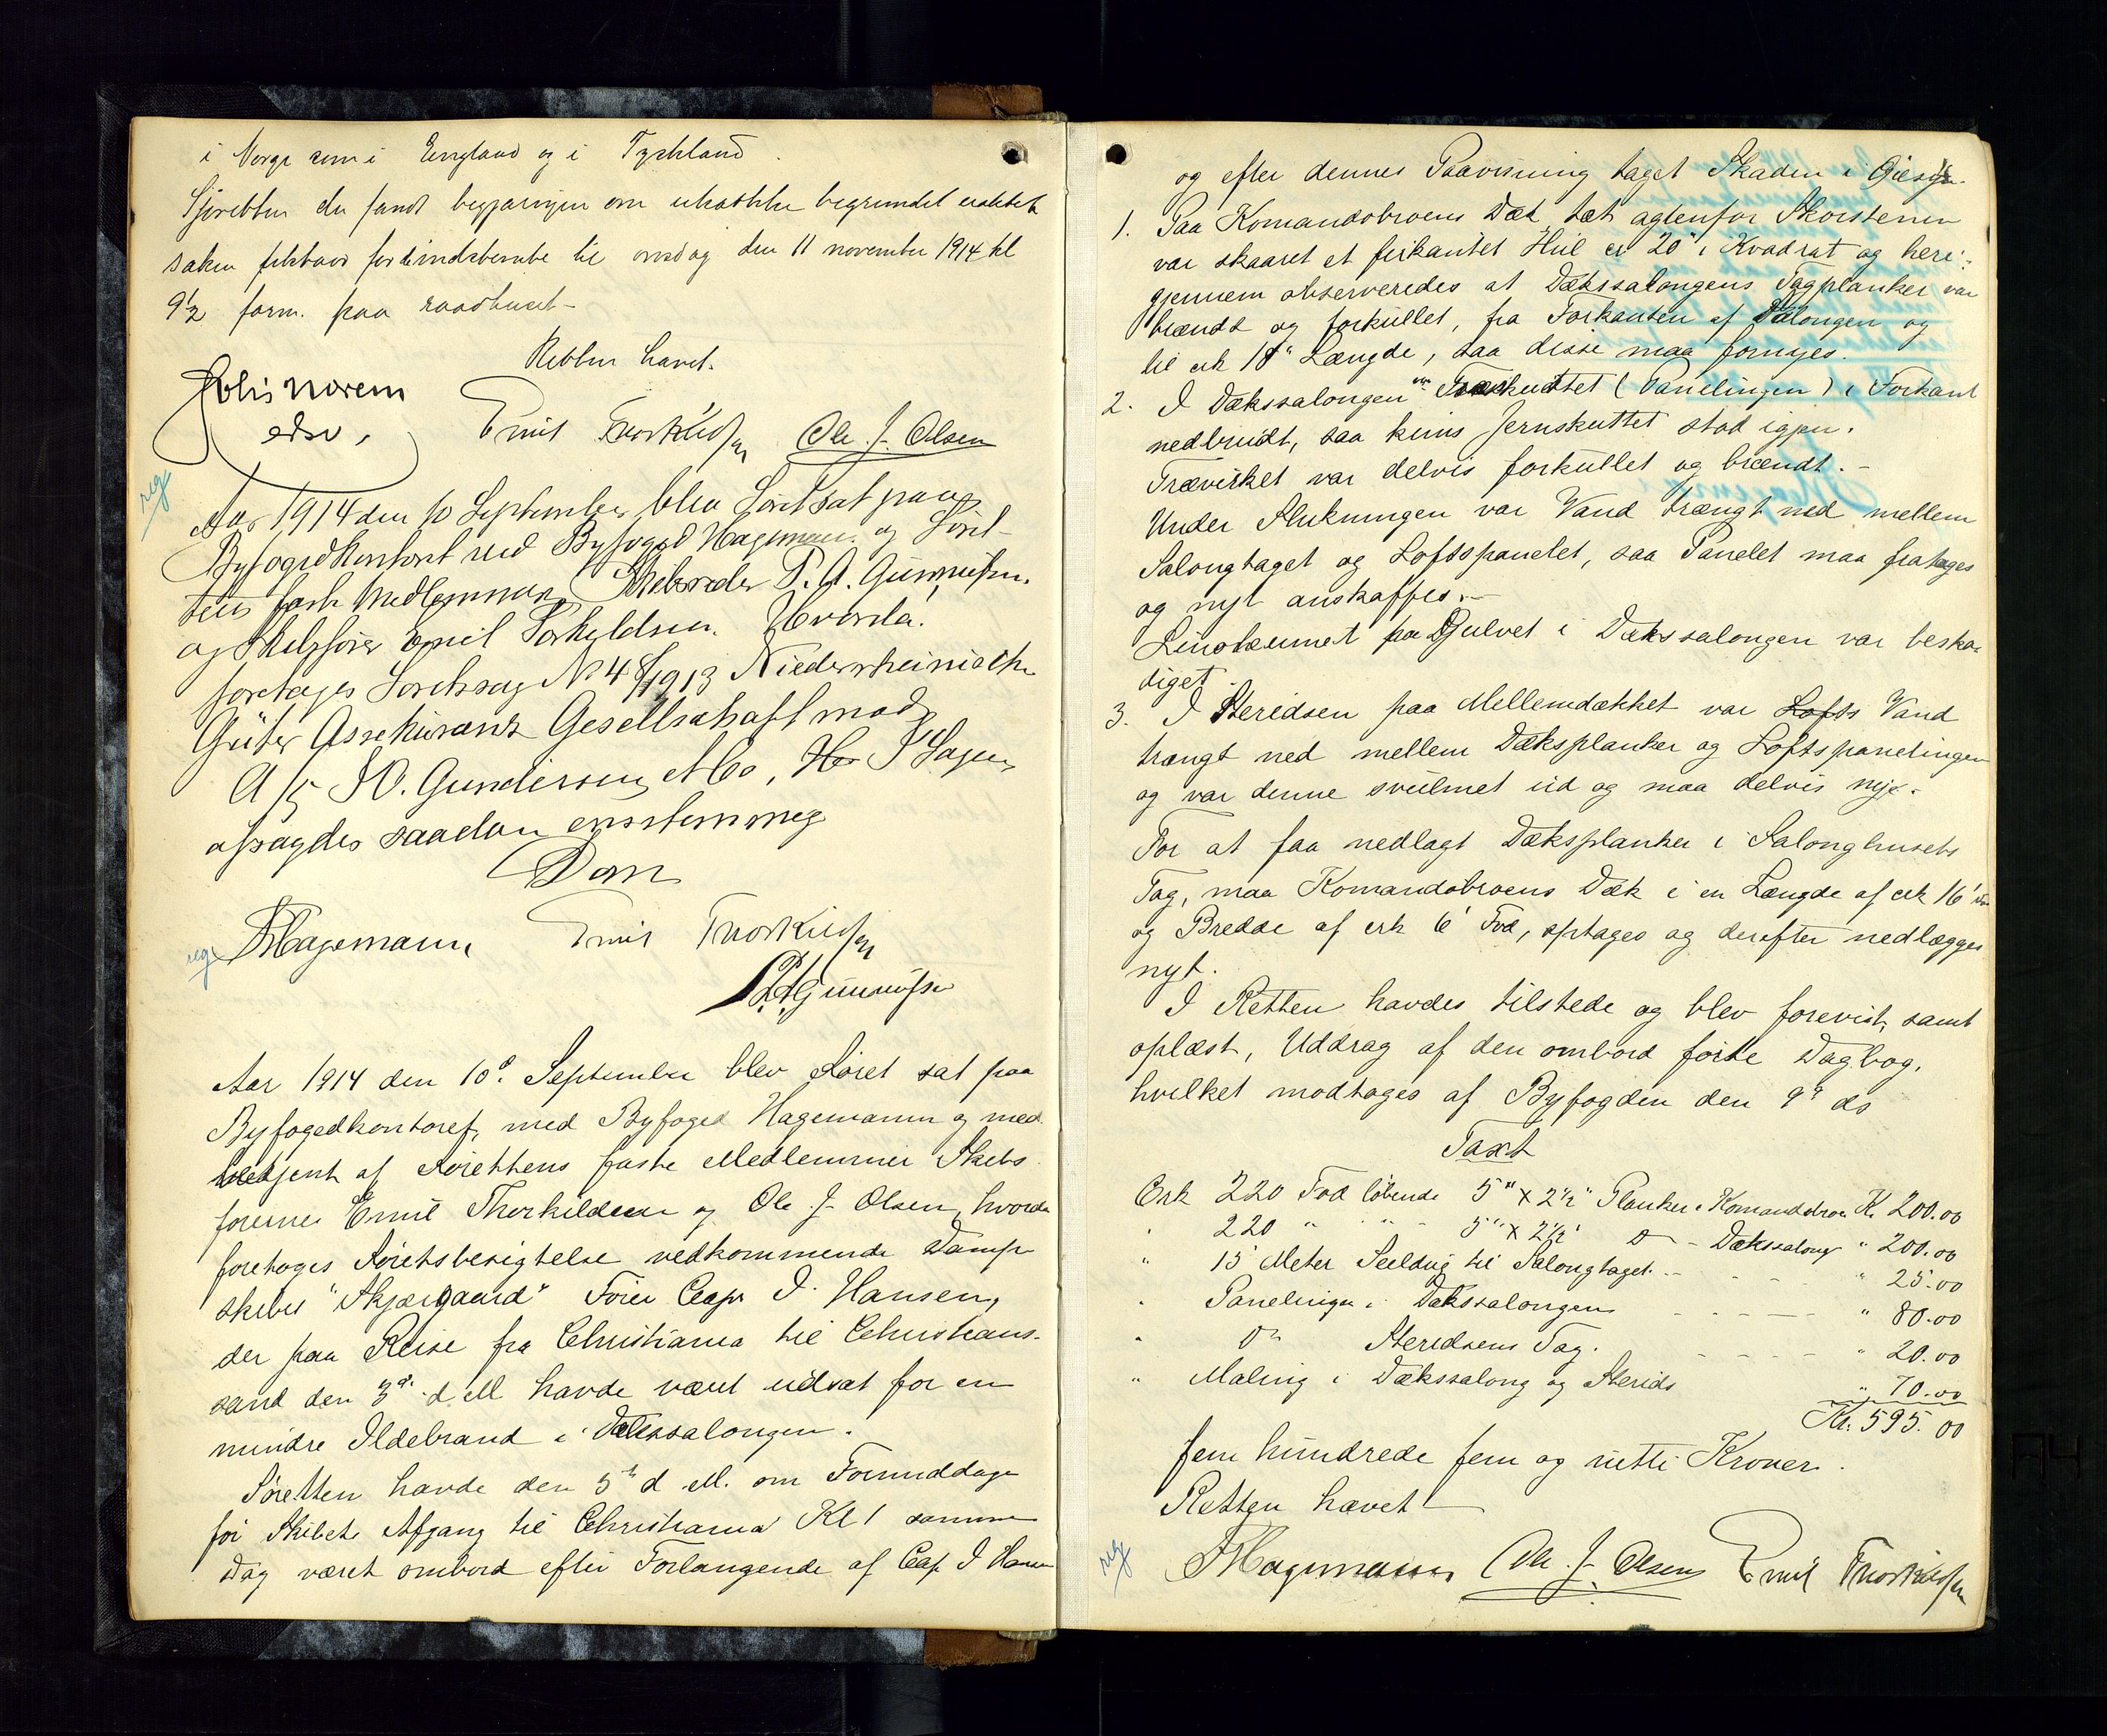 i Norge som i England og i Tyskland.
Sjøretten der fandt begjæringen om utsættelse begrundet utsatte
saken forbindsbemte til onsdag den 11 november 1914 kl
9½ form. paa raadhuset-
Retten hævet.
Johs Norem
edsv.
Emil Thorkildsen Ole J. Olsen
reg
Aar 1914 den 10 September blev Søret sat paa
Byfogedkontoret ved Byfoged Hagemann og Søret-
tens faste Medlemmer Skibsreder P. A. Gunnufsen
og Skibsfører Emil Torkildsen. Hvorda
foretoges Søretssag No 48/1913 Niederrheinische
Güter Assekuranz Gesellschaft mod
A/S S. O. Gundersen & Co,
afsagdes saadan enstemmig
Dom
reg
Hagemann Emil Thorkildsen
P.A. Gunnufsen
Aar 1914 den 10d. September blev Søret sat paa
Byfogedkontoret, med Byfoged Hagemann og med
betjent af Sørettens faste Medlemmer Skibs
førerne Emil Thorkildsen og Ole J. Olsen, hvorda
foretoges Søretsbesigtelse vedkommende Damp
skibet "Skjærgaard" Fører Capt I. Hansen,
der paa Reise fra Christiania til Christians-
sand den 3d. d M havde været udsat for en
mindre Ildebrand i Dækssalongen.
Søretten havde den 5te d. M. om Formiddage
før Skibets Afgang til Christiania Kl 1 samme
Dag været ombord efter Forlangende af Cap I Hansen
og efter dennes Paavisning taget Skaden i Øiesyn.
1. Paa Komandobroens Dæk tæt agtenfor Skorstenen
var skaaret et firkantet Hul ca 20" i Kvadrat og heri-
gjennem observeredes at Dækssalongens Tagplanker var
brændt og forkullet, fra Forkanten af Salongen og
til cirk 18" Længde, saa disse maa fornyes.
2. I Dækssalongen var Træskuttet (Panelingen) i Forkant
nedbrudt, saa kuns Jernskuttet stod igjen.
Trævirket var delvis forkullet og brændt.-
Under Slukningen var Vand trængt ned mellem
Salongtaget og Loftspanelet, saa Panelet maa fratages
og nyt anskaffes.-
Linoleumet paa Gulvet i Dækssalongen var beska-
diget.
3. I Steridsen paa Mellemdækket var Lofts Vand
trængt ned mellem Dæksplanker og Loftspanelingen
og var denne svulmet ud og maa delvis nye.
For at faa nedlagt Dæksplanker i Salonghusets
Tag, maa Komandobroens Dæk i en Længde af cirk 16'
og Bredde af cirk 6' Fod, optages og derefter nedlægges
nyt.
I Retten havdes tilstede og blev forevist, samt
oplæst, Uddrag af den ombord førte Dagbog,
hvilket modtoges af Byfogden den 9d ds
Taxt
Cirk 220 Fod løbende 5" x 2½" Planker i Komandobroen Kr. 200.00
" 220 " " - 5" x 2½" Do - Dækssalong " 200.00
" 15 Meter Seildug til Salongtaget - - - " 25.00
" Panelingen i Dækssalongen - - - " 80.00
" Do Steridsens Tag. - - - - " 20.00
" Maling i Dækssalong og Sterids " 70.00
Kr. 595.00
fem hundrede fem og nitti Kroner.
Retten hævet!
reg
Hagemann Ole J. Olsen Emil Thorkildsen